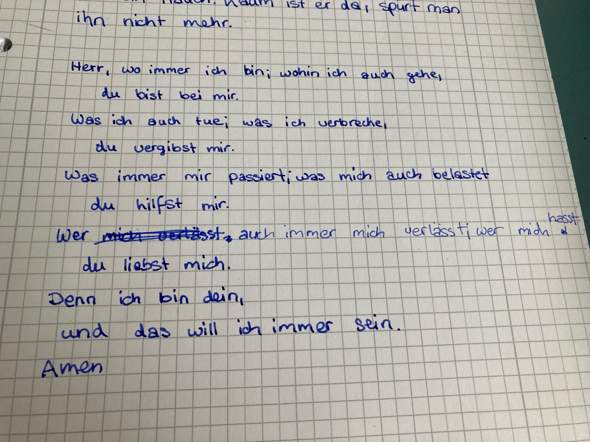 Hauch. Kaum ist er da, spürt man
ihn nicht mehr.
Herr, wo immer ich bin; wohin ich auch gehe,
du bist bei mir.
Was ich auch tue; was ich verbreche,
du vergibst mir.
Was immer mir passiert; was mich auch belastet
du hilfst mir.
Wer mich verlässt, auch immer mich verlässt; wer mich hasst
du liebst mich.
Denn ich bin dein,
und das will ich immer sein.
Amen